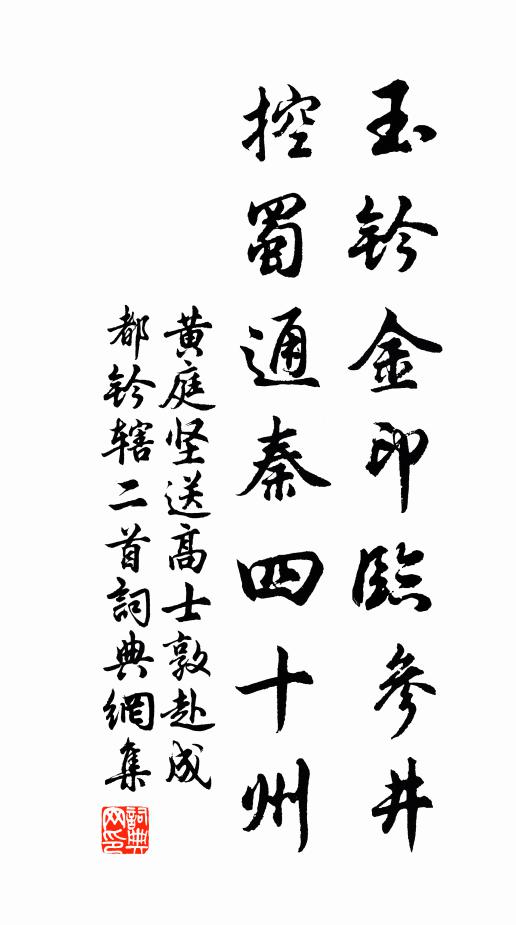 玉鈐金印臨參井
控蜀通秦四十州
黄庭坚送高士敦赴成
都鈐辖二首詞典網集
詞典
网印